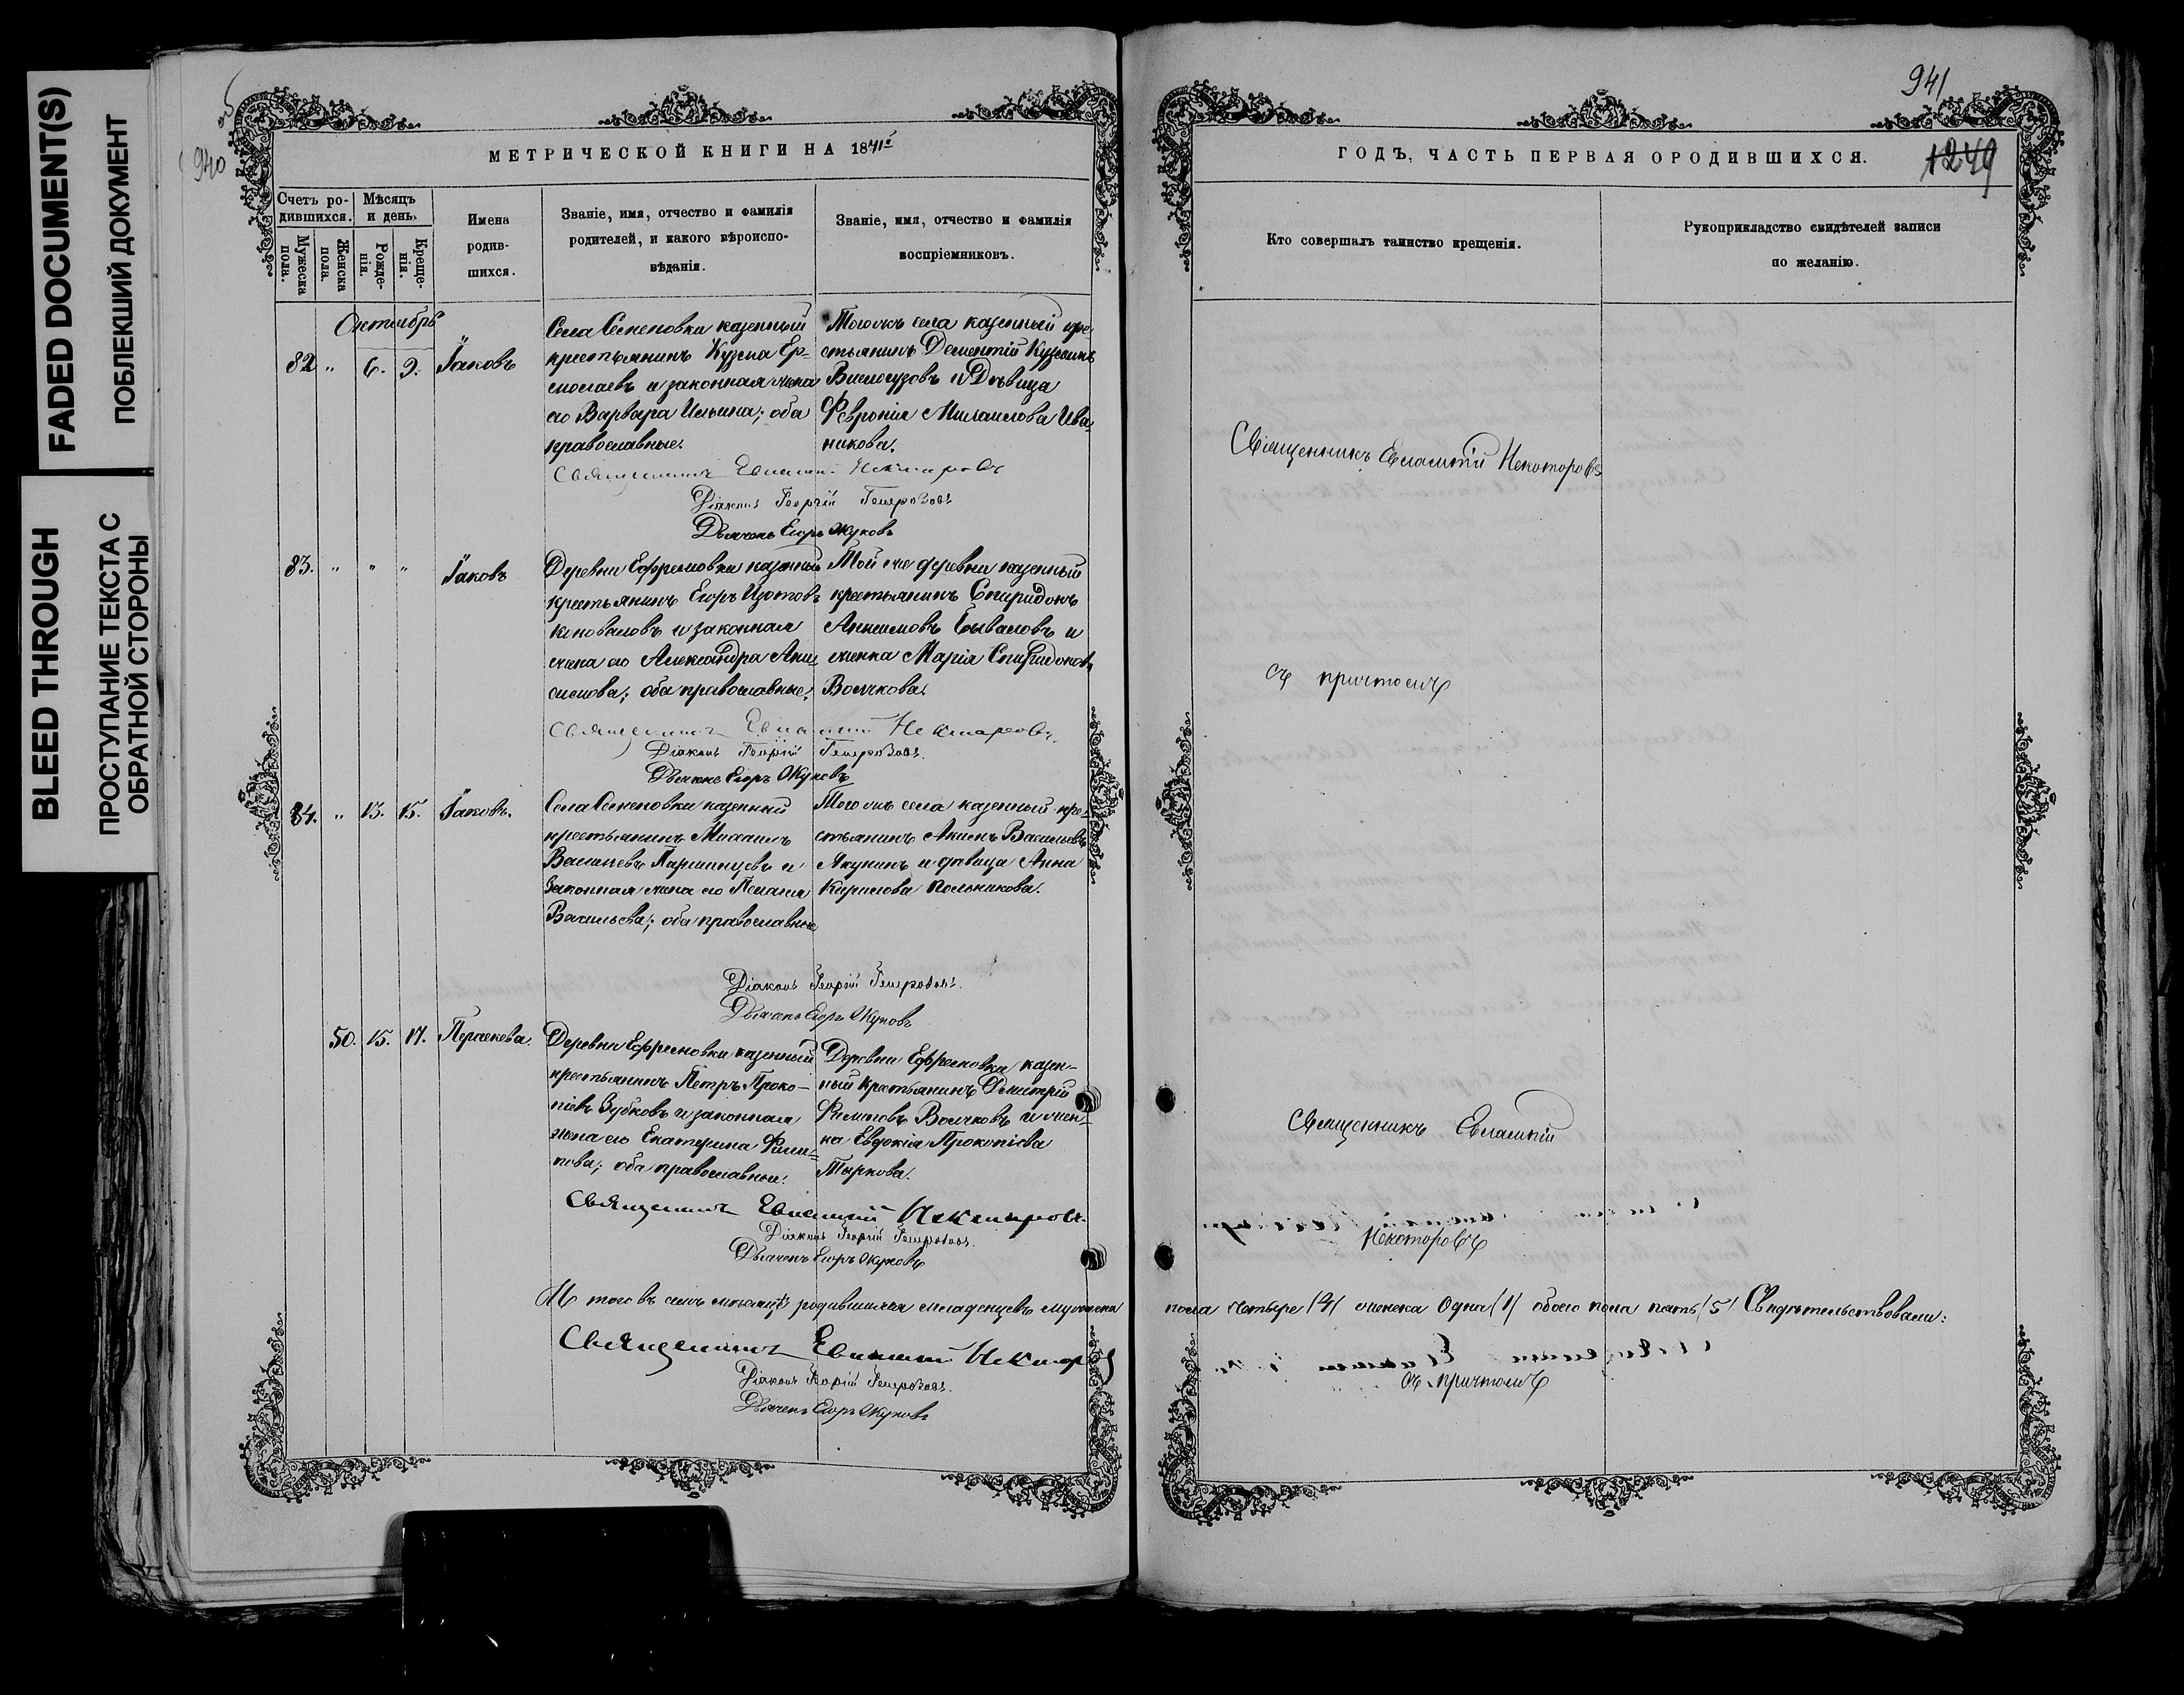 FADED DOCUMENT(S)
ПОБЛЕКШИЙ ДОКУМЕНТ
BLEED THROUGH
ПРОСТУПАНИЕ ТЕКСТА С
ОБРАТНОЙ СТОРОНЫ
940
МЕТРИЧЕСКОЙ КНИГИ НА 1871й
Счетъ ро-
дившихся.
Мужеска
пола.
Женска
пола.
Мѣсяцъ
и день.
Рожде-
нія.
Креще-
нія.
Имена
родив-
шихся.
Званіе, имя, отчество и фамилія
родителей, и какого вѣроиспо-
вѣданія.
Званіе, имя, отчество и фамилія
воспріемниковъ.
Октябрь
82 " 6. 9. Іаковъ
Села Семеновки казенный
крестьянинъ Кузма Ер-
молаевъ и законная жена
его Варвара Ильина; оба
православные.
Того же села казенный кре-
стьянинъ Дементій Кузминъ
и Дѣвица
Февронія Михаилова Ива-
никова.
Священникъ Евлампій Нектаровъ
Діаконъ Георгій
Дьячекъ Егоръ Жуковъ
83. " " " Іаковъ
Деревни Ефремовки казенный
крестьянинъ Егоръ Изотовъ
Коноваловъ и законная
жена его Александра Ани-
симова; оба православные.
Той же деревни казенный
крестьянинъ Спиридонъ
Анисимовъ Бываловъ и
женка Марія Спиридонов
Волчкова.
Священникъ Евлампій Нектаровъ.
Діаконъ Георгій
Дьячекъ Егоръ Жуковъ
84. " 13. 15. Іаковъ.
Села Семеновки казенный
крестьянинъ Михаилъ
Васильевъ Паршинцевъ и
Законная жена его Пелагея
Васильева; оба православные
Того же села казенный кре-
стьянинъ Акимъ Васильевъ
Якунинъ и дѣвица Анна
Кирилова Польникова.
Діаконъ Георгій
Дьячекъ Егоръ Жуковъ
50. 15. 17. Параскева.
Деревни Ефремовки казенный
крестьянинъ Петръ Проко-
піевъ Зубковъ и законная
жена его Екатерина Фили-
пова; оба православные.
Деревни Ефремовки казен-
ный крестьянинъ Дмитрій
Филиповъ Волчковъ и жен-
ка Евдокія Прокопіева
Тыркова.
Священникъ Евлампій Нектаровъ.
Діаконъ Георгій
Дьячекъ Егоръ Жуковъ
И того въ семъ мѣсяцѣ родившихся младенцевъ мужеска
Священникъ Евлампій Нектаровъ
Діаконъ Георгій
Дьячекъ Егоръ Жуковъ
941
1249
ГОДЪ, ЧАСТЬ ПЕРВАЯ О РОДИВШИХСЯ.
Кто совершалъ таинство крещенія.
Рукоприкладство свидѣтелей записи
по желанію.
Священникъ Евлампій Некторовъ
съ причтомъ
Священникъ Евлампій
Некторовъ
пола четыре (4) женска одна (1) обоего пола пять (5) Свидѣтельствовали:
съ причтомъ